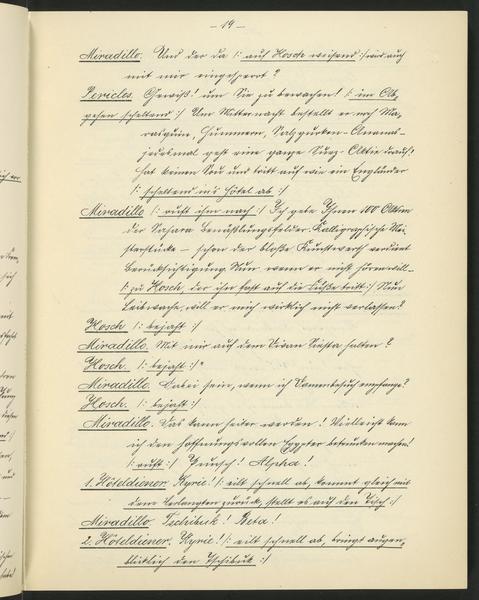 – 19 –
Miradillo. Und der da /: auf Hosch weisend :/ wird auch
mit mir eingesperrt?
Pericles. Gewiß! um Sie zu bewachen! /: im Ab-
gehen scheltend :/ Um Mitternacht bestellt er noch Ma-
rasquin, Hummern, Salzgurken-Ananas-
jedesmal geht eine ganze Suez-Aktie drauf!
hat keinen Sou und tritt auf wie ein Engländer
/: scheltend in's Hôtel ab :/
Miradillo /: ruft ihm nach :/ Ich gebe Ihnen 100 Aktien
der Sahara Berieslungsfelder. Kalligraphische Mei-
sterstücke – schon der bloße Kunstwerth verdient
Berücksichtigung. Nun wenn er nicht hören will –
/: zu Hosch, der ihm fast auf die Füße tritt :/ Nun
Leibwache, will er mich wirklich nicht verlassen?
Hosch /: bejaht :/
Miradillo. Mit mir auf dem Divan Siesta halten?
Hosch. /: bejaht :/
Miradillo. Dabei sein, wenn ich Damenbesuch empfange?
Hosch. /: bejaht :/
Miradillo. Das kann heiter werden! Vielleicht kann
ich den hoffnungsvollen Egypter betrunken machen!
/: ruft :/ Punsch! Alpha!
1. Hôteldiener. Kyrie! /: eilt schnell ab, kommt gleich mit
dem Verlangten zurück, stellt es auf den Tisch :/
Miradillo. Tschibuk! Beta!
2. Hôteldiener. Kyrie! /: eilt schnell ab, bringt augen-
blicklich den Tschibuk :/